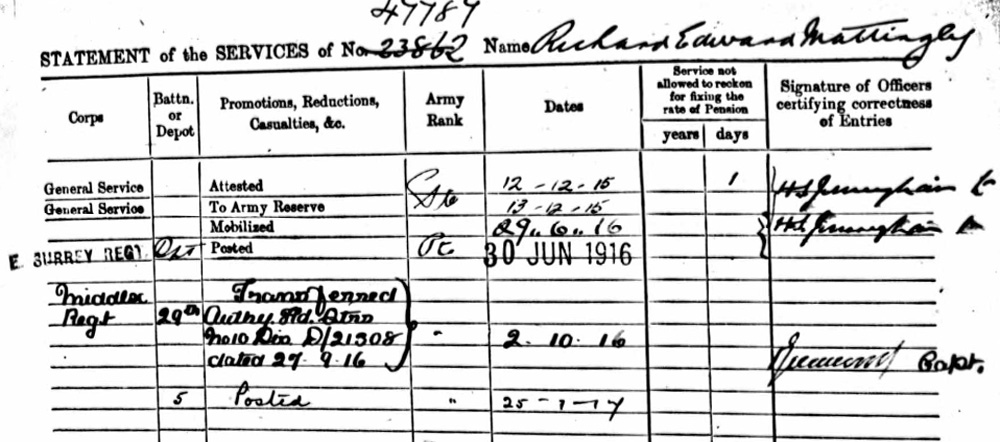 47789
STATEMENT of the SERVICES of No. 23862 Name Richard Edward Mattingley
Corps
Battn. or Depot
Promotions, Reductions, Casualties, &c.
Army Rank
Dates
Service not allowed to reckon for fixing the rate of Pension
years days
Signature of Officers certifying correctness of Entries
General Service Attested 12-12-15 1
General Service To Army Reserve 13-12-15
Mobilized 29.. 6.. 16
E. SURREY REGT. Dpt Posted Pte 30 JUN 1916
Middlex Transferred
Regt 29th Authy Hd.
No 10 Dis D/21308 " 2. 10. 16
dated 27. 9. 16 Capt.
5 Posted " 25-1-17